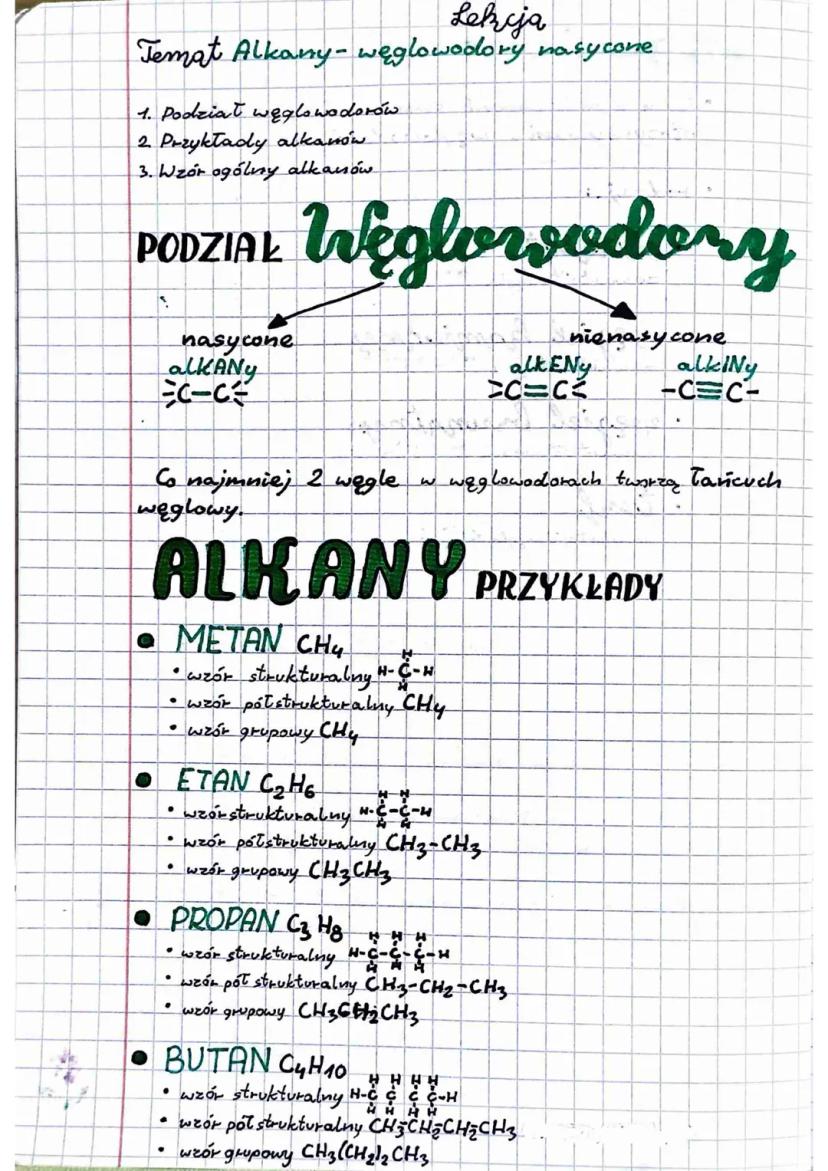 Lekcja
Temat Alkany- węglowodory nasycone
1. Podział węglowodorów
2. Przykłady alkanów
3. Wzór ogólny alkanów
PODZIAŁ Węglowodory
nasycone nienasycone
alKANy alkENy alkINy
C-C C=C -C≡C-
Co najmniej 2 węgle w węglowodorach tworzą łańcuch
węglowy.
ALKANY PRZYKŁADY
• METAN CH4
H
• wzór strukturalny H-C-H
H
• wzór półstrukturalny CH4
• wzór grupowy CH4
• ETAN C2H6
H H
• wzór strukturalny H-C-C-H
H H
• wzór półstrukturalny CH3-CH3
• wzór grupowy CH3CH3
• PROPAN C3H8
H H H
• wzór strukturalny H-C-C-C-H
H H H
• wzór półstrukturalny CH3-CH2-CH3
• wzór grupowy CH3CH2CH3
• BUTAN C4H10
H H H H
• wzór strukturalny H-C C C C-H
H H H H
• wzór półstrukturalny CH3-CH2-CH2-CH3
• wzór grupowy CH3(CH2)2CH3